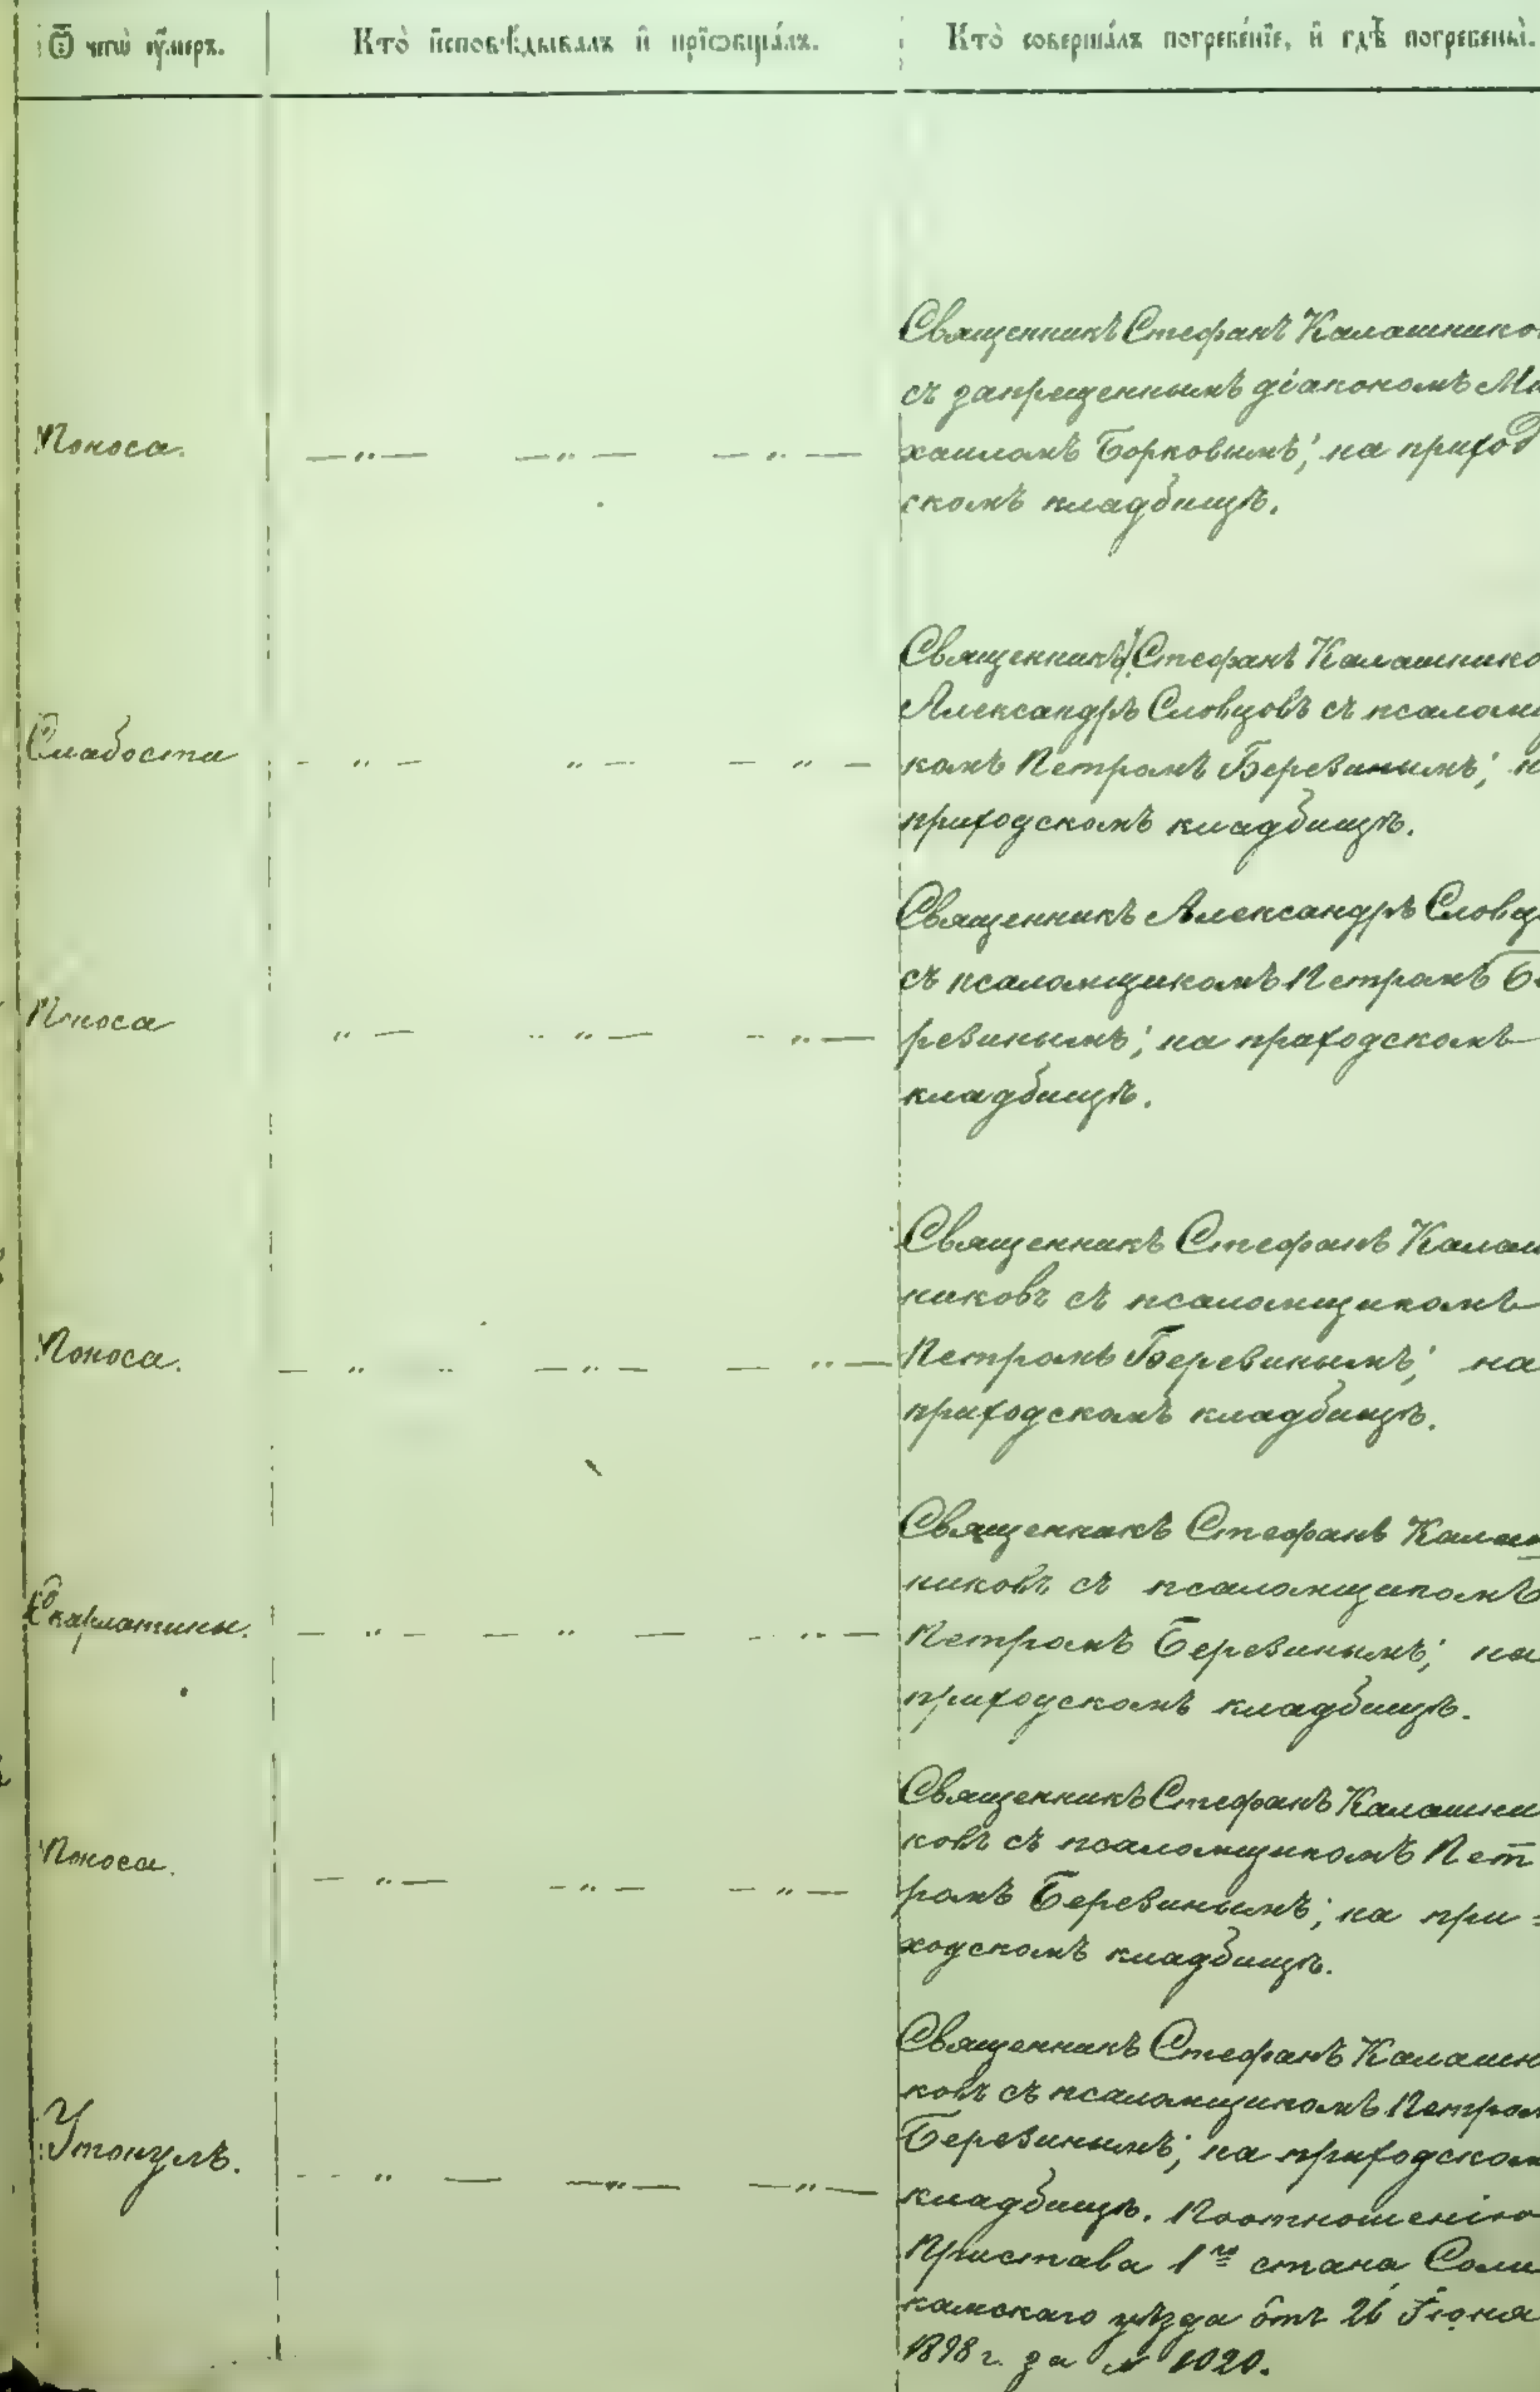 Ѿ чегѡ ᲂу҆́мерх.
Кто̀ и҆сповѣ́дывалъ и҆ прїѡбща́лъ.
Кто̀ соверша́лъ погребе́нїе, и҆ гдѣ̀ погребены̀.
Священникъ Стефанъ Калашнико
съ запрещеннымъ діакономъ Ми
Поноса.
хаиломъ Борковымъ; на приход
скомъ кладбищѣ.
Священникъ Стефанъ Калашнико
Александръ Словцовъ съ псаломщ
Слабости
комъ Петромъ Березинымъ; н
приходскомъ кладбищѣ.
Священникъ Александръ Словц
съ псаломщикомъ Петромъ Бе
Поноса
резинымъ; на приходскомъ
кладбищѣ.
Священникъ Стефанъ Калаш
никовъ съ псаломщикомъ
Поноса.
Петромъ Березинымъ; на
приходскомъ кладбищѣ.
Священникъ Стефанъ Калаш
никовъ съ псаломщикомъ
Скарлатины.
Петромъ Березинымъ; на
приходскомъ кладбищѣ.
Священникъ Стефанъ Калашни
ковъ съ псаломщикомъ Пет
Поноса.
ромъ Березинымъ; на при=
ходскомъ кладбищѣ.
Священникъ Стефанъ Калашн
ковъ съ псаломщикомъ Петром
Утонулъ.
Березинымъ; на приходском
кладбищѣ. По отношенію
Пристава 1го стана Соли
камскаго уѣзда отъ 26 Іюня
1898 г. за № 1020.